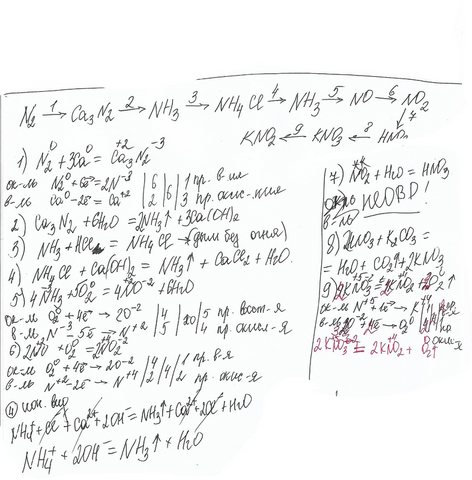 N₂ 1→ Ca₃N₂ 2→ NH₃ 3→ NH₄Cl 4→ NH₃ 5→ NO 6→ NO₂
↓7
KNO₂ ←9 KNO₃ ←8 HNO₃
1) N₂⁰ + 3Ca⁰ = Ca₃⁺²N₂⁻³
ок-ль N₂⁰ + 6ē = 2N⁻³ | 6 | | 1 пр.
в-ль Ca⁰ - 2ē = Ca⁺² | 2 | 6 | 3 пр. окис-ния
2) Ca₃N₂ + 6H₂O = 2NH₃↑ + 3Ca(OH)₂
3) NH₃ + HCl = NH₄Cl (дым без огня)
4) NH₄Cl + Ca(OH)₂ = NH₃↑ + CaCl₂ + H₂O
5) 4NH₃⁻³ + 5O₂⁰ = 4NO⁻² + 6H₂O
ок-ль O₂⁰ + 4ē → 2O⁻² | 4 | | 5 пр. восст-я
в-ль N⁻³ - 5ē → N⁺² | 5 | 20 | 4 пр. окисл-я
6) 2NO + O₂⁰ = 2NO₂⁻²
ок-ль O₂⁰ + 4ē → 2O⁻² | 4 | | 1 пр. в-я
в-ль N⁺² - 2ē → N⁺⁴ | 2 | 4 | 2 пр. окис-я
④ ион. вид
NH₄⁺ + Cl⁻ + Ca²⁺ + 2OH⁻ = NH₃↑ + Ca²⁺ + 2Cl⁻ + H₂O
NH₄⁺ + 2OH⁻ = NH₃↑ + H₂O
7) NO₂ + H₂O = HNO₃
НЕОВР!
в-ль
8) 2HNO₃ + K₂CO₃ =
= H₂O + CO₂↑ + 2KNO₃
9) 2KNO₃ = 2KNO₂ + O₂↑
ок-ль N⁺⁵
в-ль
окис-я
2KNO₃ = 2KNO₂ + O₂↑